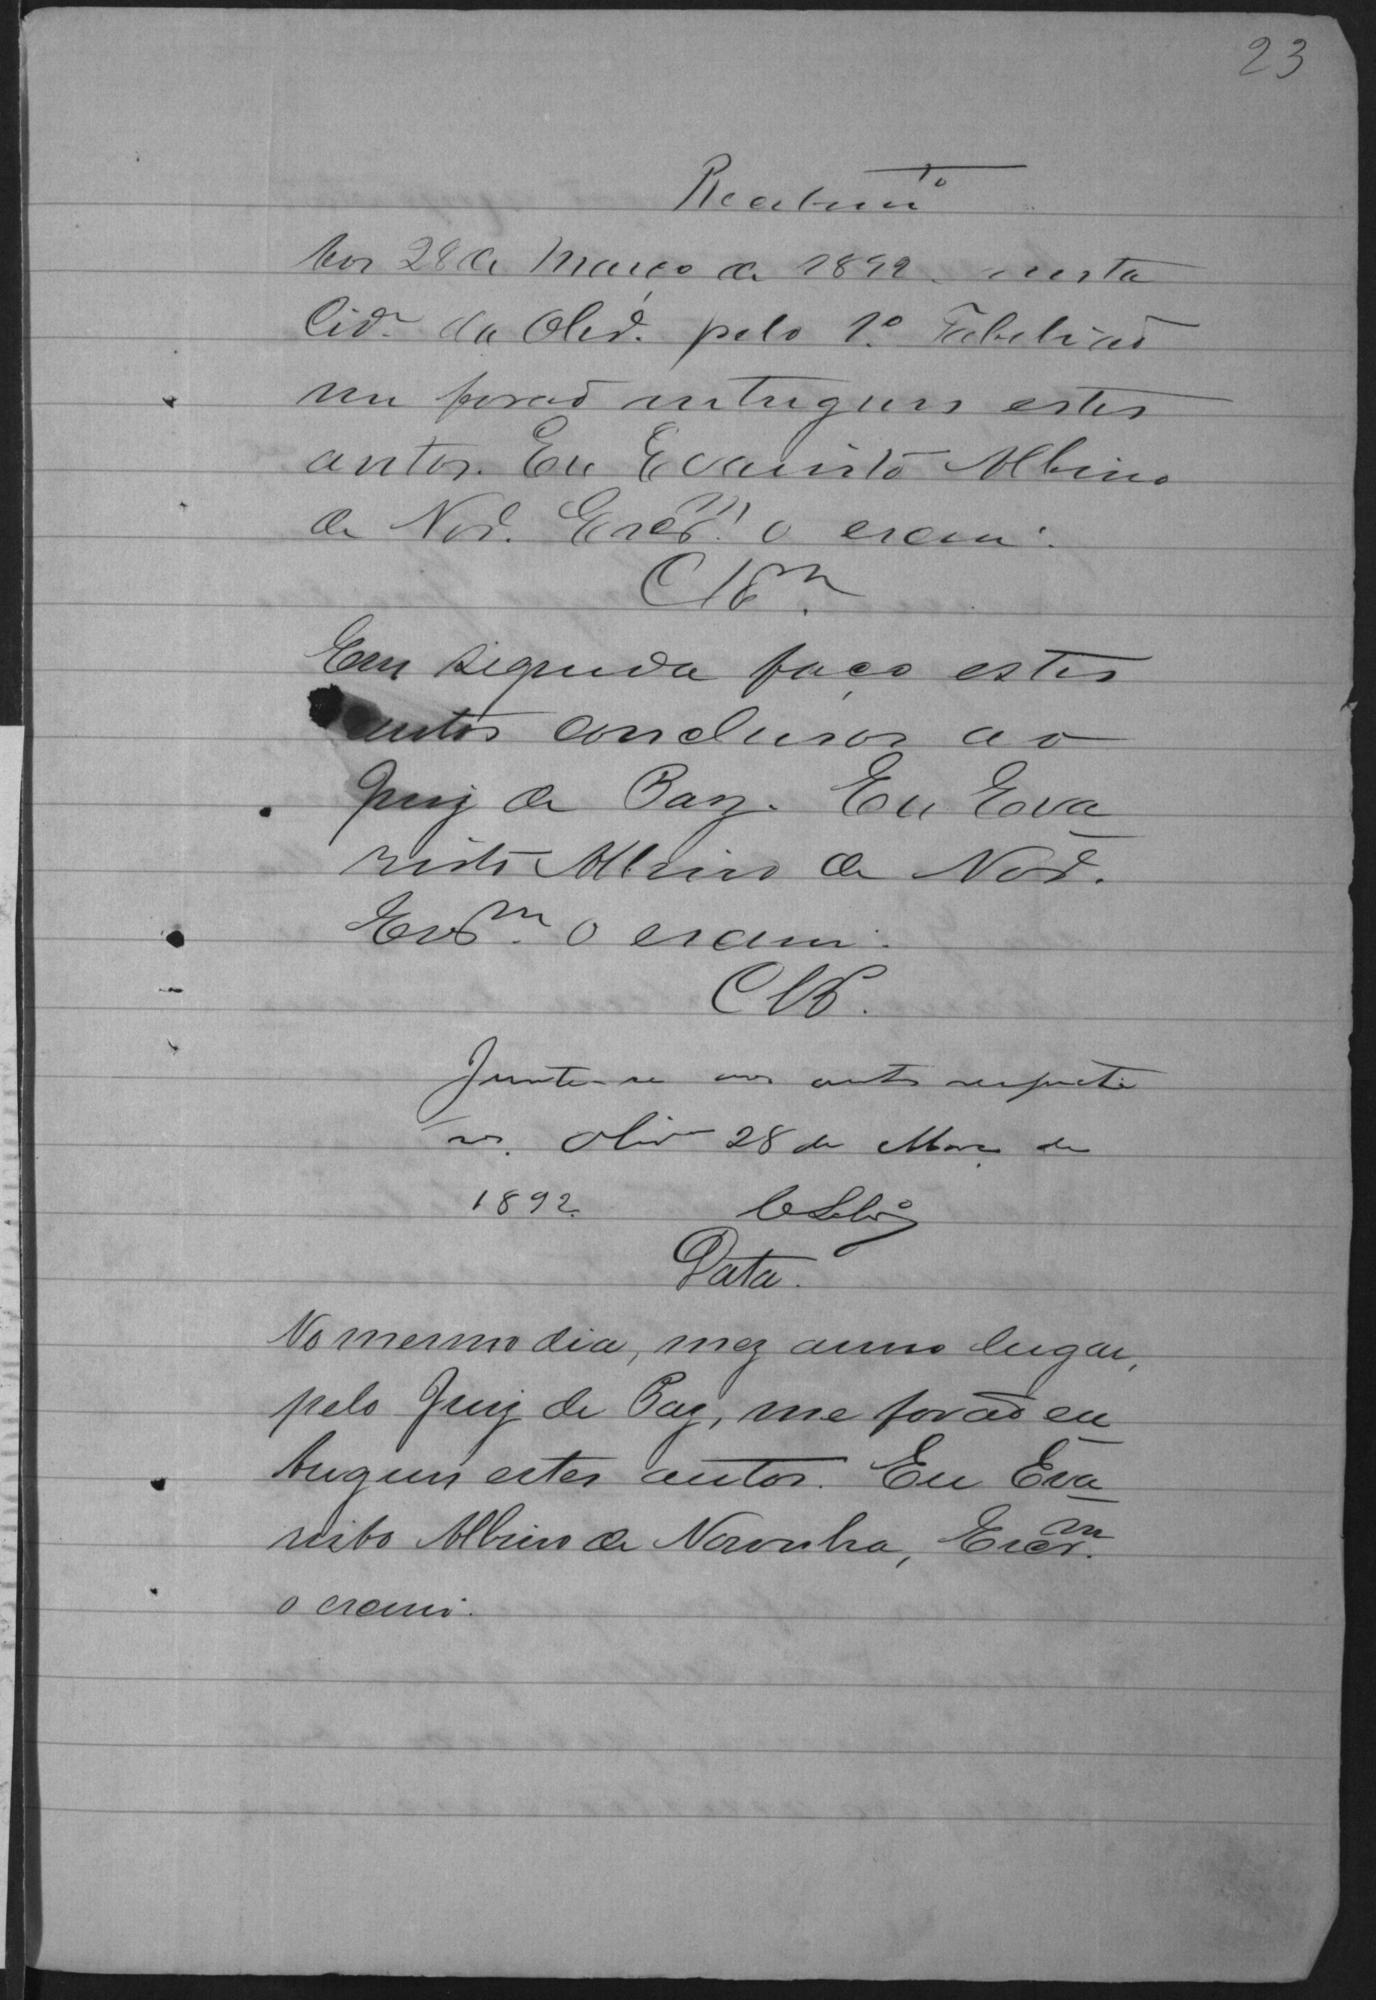 23
Recebim.to
Aos 28 de Março de 1892. nesta
Cid.e da Olivr.a pelo 1.o Tabelião
me forão entregues estes
autos. Eu Evaristo Albino
de Nor.a Escr.m o escrevi.
Clsm.
Em seguida faço estes
autos conclusos ao
Juiz de Paz. Eu Eva
risto Albino de Nor.a
Escr.m o escrevi.
Cls.
Junte-se aos autos respecti
vos. Oliv.a 28 de Março de
1892.
Data.
No mesmo dia, mez anno lugar,
pelo Juiz de Paz, me forão en
tregues estes autos. Eu Eva
risto Albino de Noronha, Escr.m
o escrevi.